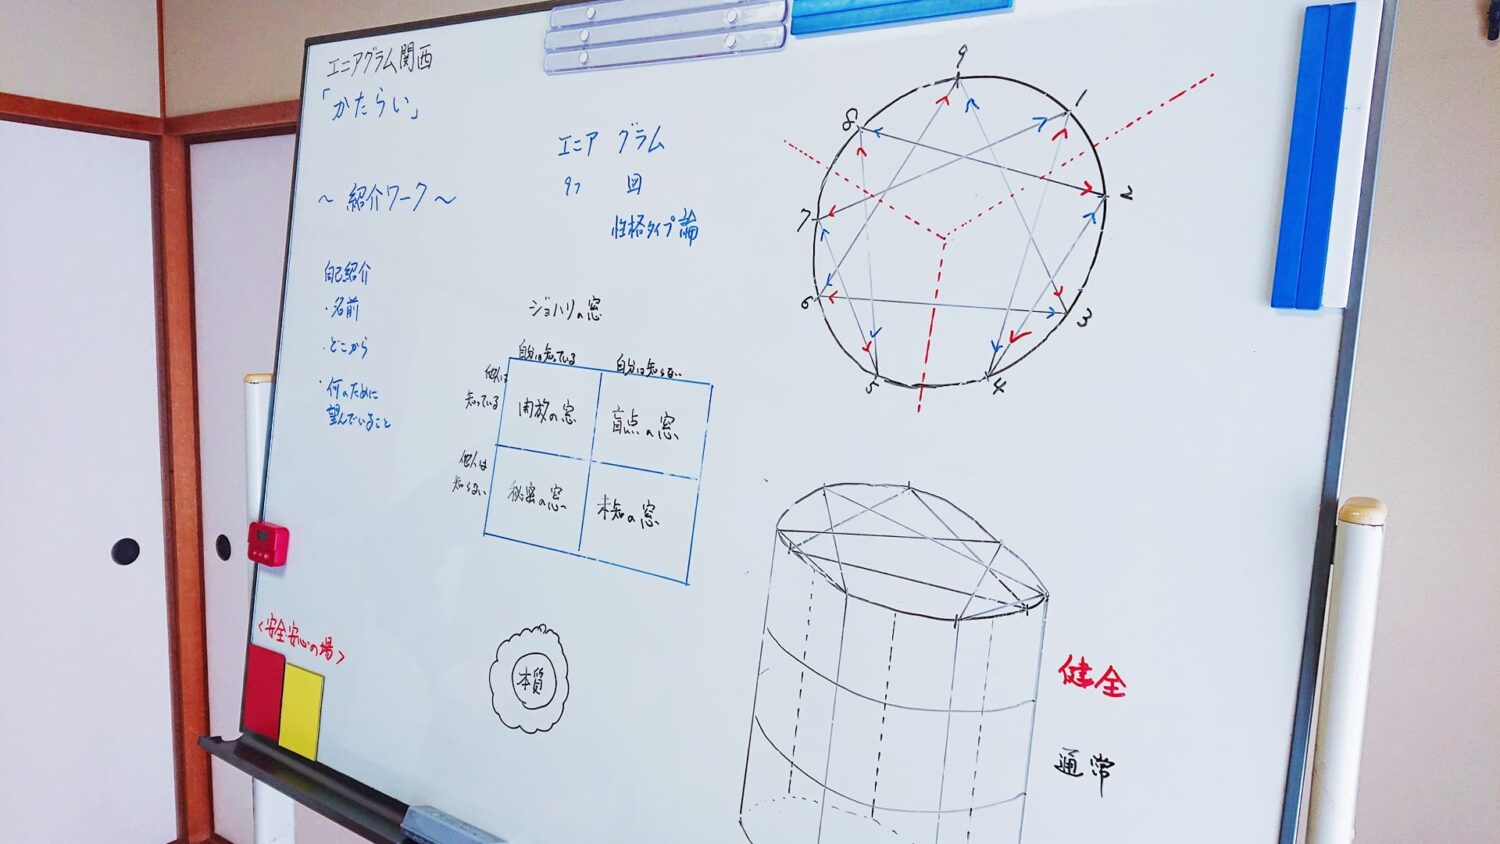 エニアグラム関西
「かたらい」
～紹介ワーク～
自己紹介
・名前
・どこから
・何のために
望んでいること
エニア グラム
9つ 図
性格タイプ論
ジョハリの窓
自分は知っている 自分は知らない
他人は
知っている
開放の窓 盲点の窓
他人は
知らない
秘密の窓 未知の窓
本質
<安全安心の場>
9
1
8
2
7
6
3
5
4
健全
通常